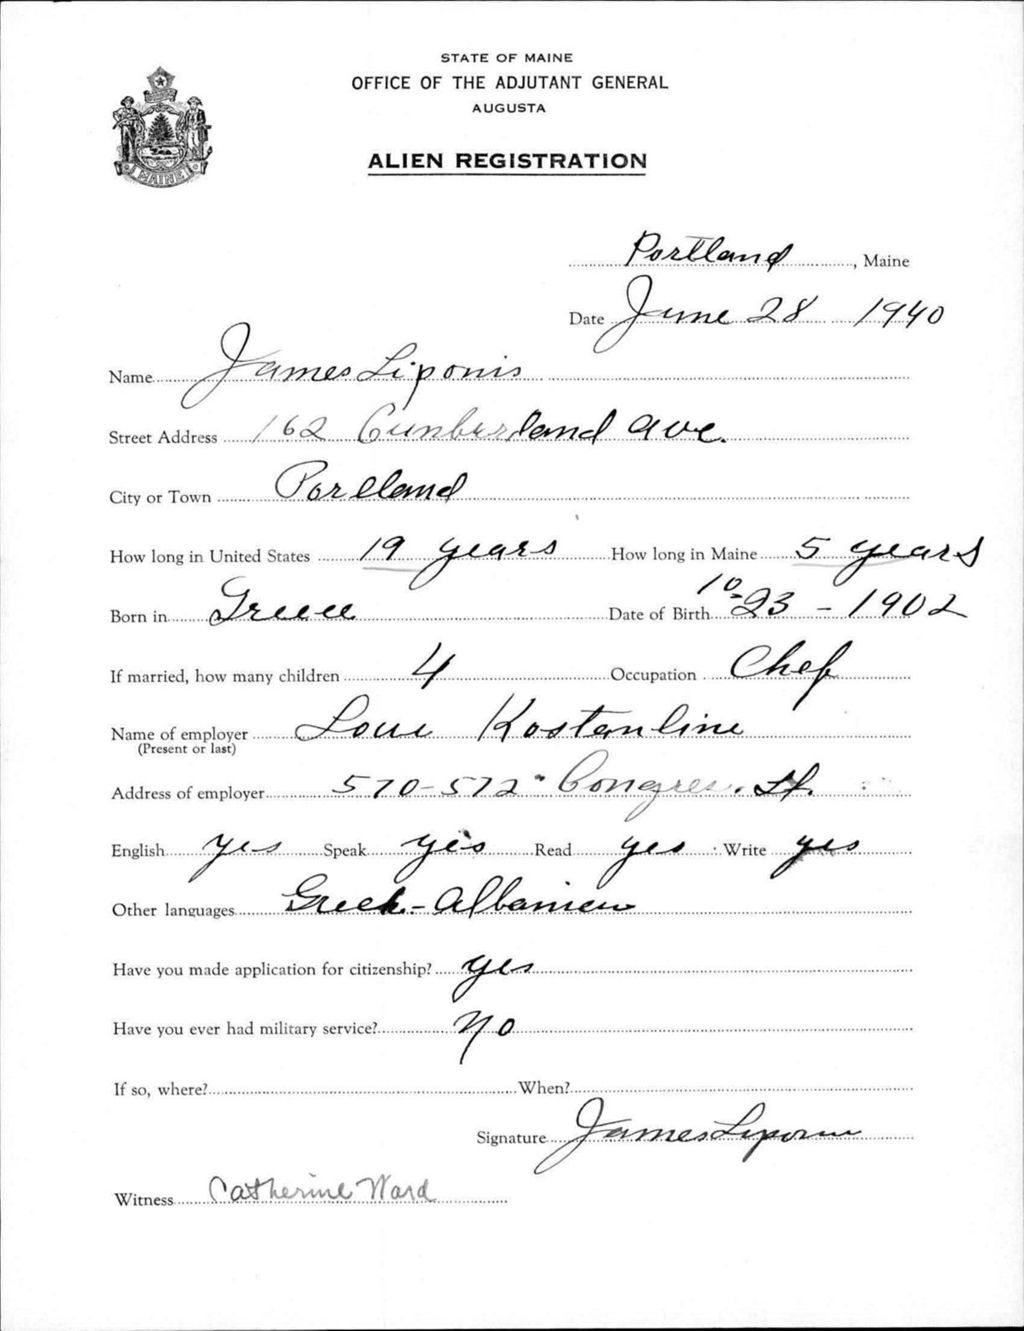 STATE OF MAINE
OFFICE OF THE ADJUTANT GENERAL
AUGUSTA
ALIEN REGISTRATION
MAINE
Portland, Maine
Date June 28 1940
Name James Liponis
Street Address 162 Cumberland Ave.
City or Town Portland
How long in United States 19 years How long in Maine 5 years
Born in Greece Date of Birth 10-23-1902
If married, how many children 4 Occupation Chef
Name of employer Loui Kostantine
(Present or last)
Address of employer 570-572 Congres. St.
English yes Speak yes Read yes Write yes
Other languages Greek-Albanien
Have you made application for citizenship? yes
Have you ever had military service? no
If so, where? When?
Signature James Liponis
Witness Catherine Ward